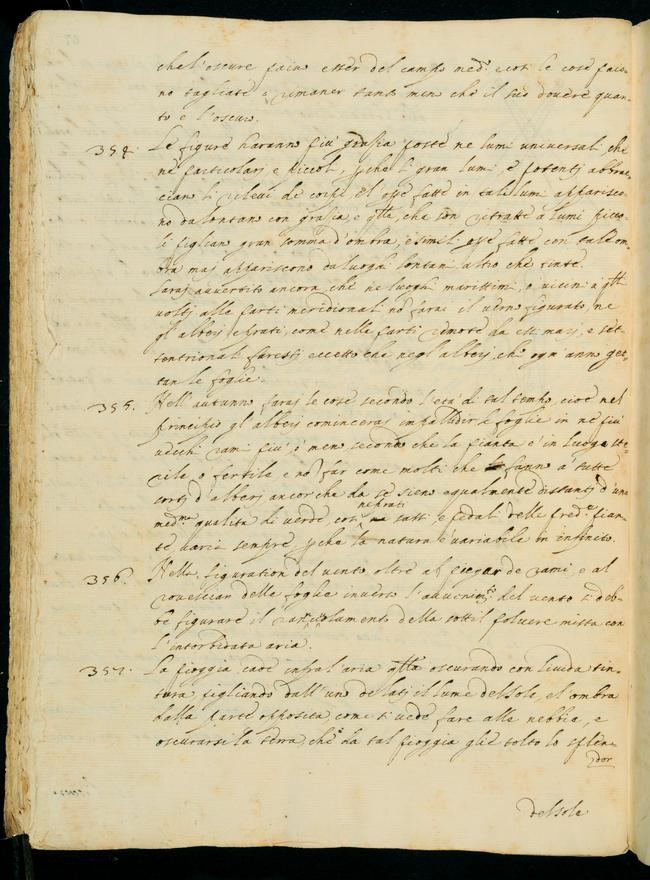 che l'oscure paion esser del campo med.º così le cose paio-
no tagliate e rimaner tanto men che il suo dovere quan-
to e l'oscuro.
354. Le figure haranno più grazia poste ne lumi universali, che
ne particolarj e piccoli, perche li gran lumi, e potentj abbrac-
ciano li rilevi de corpi, e l'opre fatte in tali lumi apparisco-
no da lontano con grazia, e q.lle, che son ritratte a lumi picco-
li pigliano gran somma d'ombra, e simili opre fatte con tale om-
bra maj appariscono da luoghi lontani altro che tinte.
Saraj avvertito ancora che ne luoghi marittimi, o vicini a q.lli
volti alle parti meridionali nō farai il verno figurato ne
gl'alberj e prati, come nelle parti remote da essi marj, e set-
tentrionali faresti eccetto che negl'alberj, che ogn'anno get-
tan le foglie.
355. Nell'autunno faraj le cose secondo l'età di tal tempo, cioè nel
principio gl'alberj comincieraj impallidir le foglie in ne più
vecchi rami più, o men secondo che la pianta è in luogo ste-
rile, o fertile e nō far come molti che fanno a tutte
sortj d'alberj ancorche da sè sieno equalmente distantj d'una
med.ma qualità di verde, così
ne prati
sassi e pedali delle pred.e pian-
te varia sempre, perche la natura è variabile in infinito.
356. Nella figuration del vento, oltre al piegar de rami, e al
rovesciar delle foglie inverso l'avvenim.to del vento si deb-
be figurare il rannuvolamento della sottil polvere mista con
l'intorbidata aria.
357. La pioggia cade infra l'aria q.lla oscurando con livida tin-
tura, pigliando dall'uno de latj il lume del sole, e l'ombra
dalla parte opposita, come si vede fare alle nebbie, e
oscurarsi la terra, che da tal pioggia glie tolto lo splen-
dor
del sole